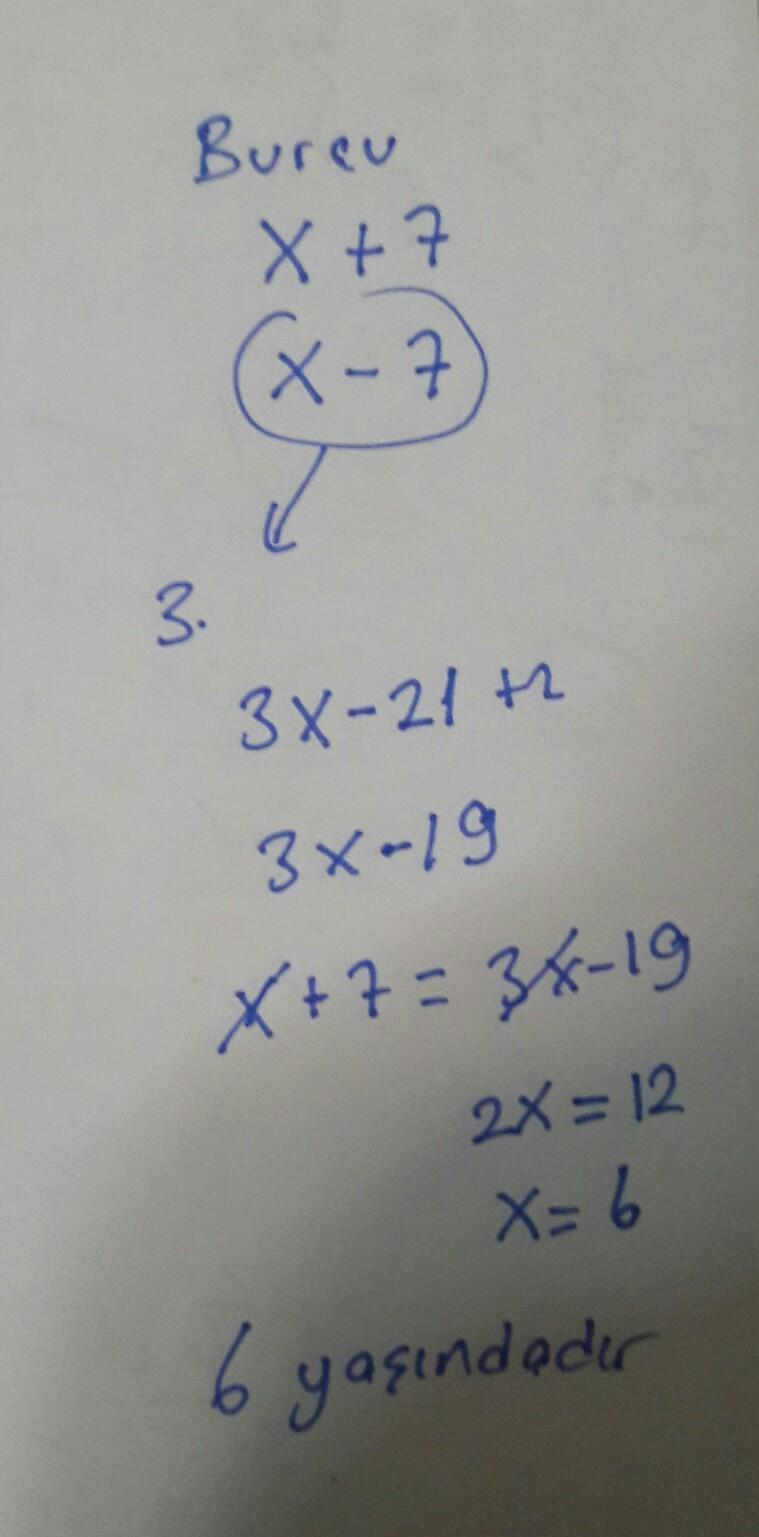 Burcu
x + 7
x - 7
3.
3x - 21 + 2
3x - 19
x + 7 = 3x - 19
2x = 12
x = 6
6 yaşındadır